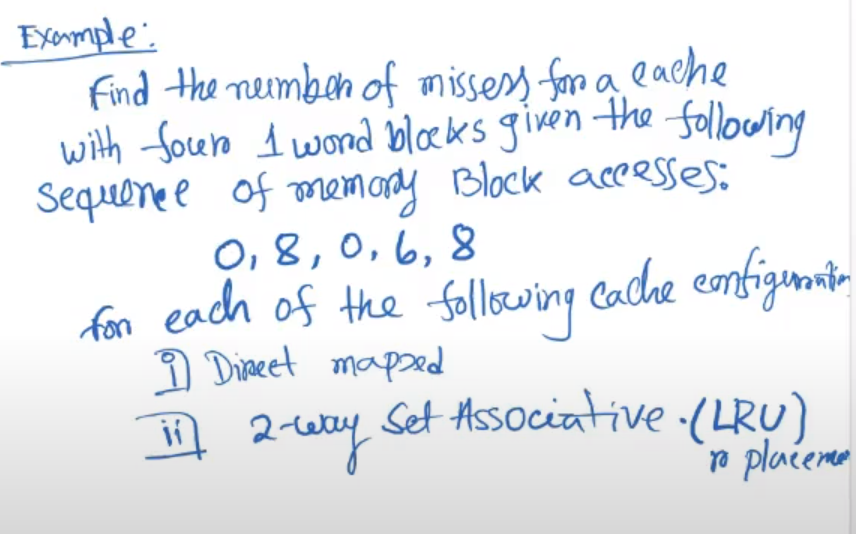 Example:
Find the number of misses for a cache
with four 1 word blocks given the following
sequence of memory Block accesses:
0, 8, 0, 6, 8
for each of the following cache configuration
i) Direct mapped
ii) 2-way Set Associative. (LRU)
replaceme